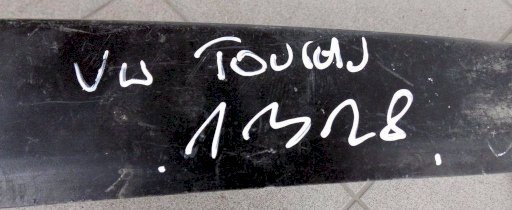 VW TOURAN
.1328.